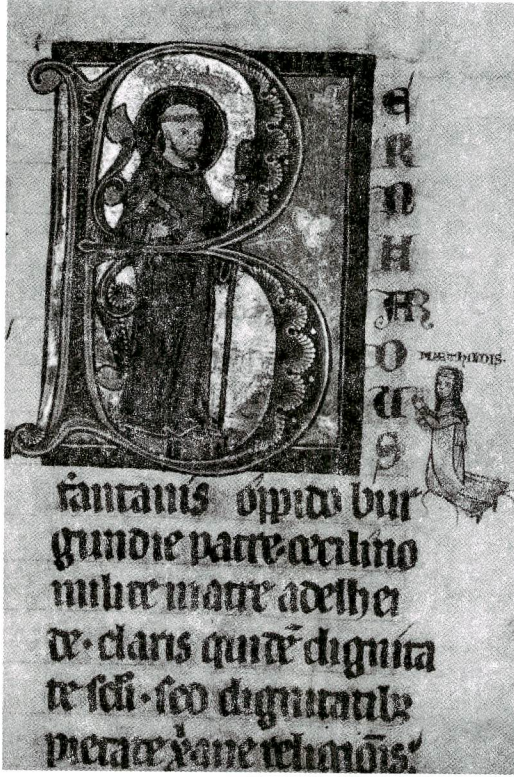 BERNHARDUS
fantanis oppido bur
gundie patre·tecilino
milite matre adelhei
de·claris quidē dignita
te scl̄i·sed dignitatibꝫ
pietate xp̄ane religiōis